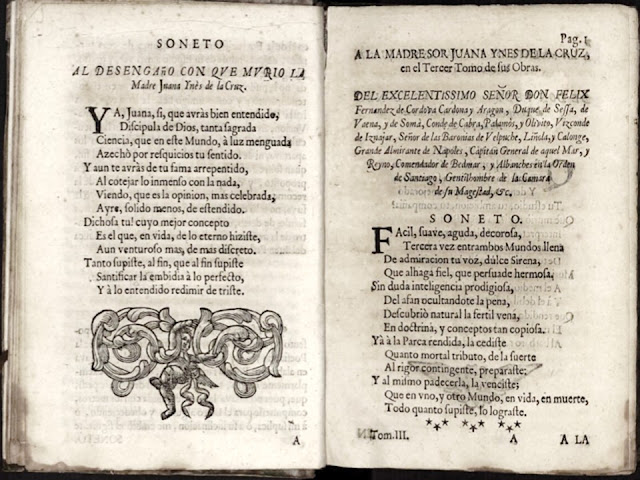 SONETO
AL DESENGAñO CON QVE MVRIO LA
Madre Juana Ynès de la Cruz.
YA, Juana, si, que avràs bien entendido,
Discipula de Dios, tanta sagrada
Ciencia, que en este Mundo, à luz menguada
Azechò por resquicios tu sentido.
Y aun te avràs de tu fama arrepentido,
Al cotejar lo inmenso con la nada,
Viendo, que es la opinion, mas celebrada,
Ayre, solido menos, de estendido.
Dichosa tu! cuyo mejor concepto
Es el que, en vida, de lo eterno hiziste,
Aun venturoso mas, de mas discreto.
Tanto supiste, al fin, que al fin supiste
Santificar la embidia à lo perfecto,
Y à lo entendido redimir de triste.
A
Pag. 1
A LA MADRE SOR JUANA YNES DE LA CRUZ,
en el Tercer Tomo de sus Obras.
DEL EXCELENTISSIMO SEÑOR DON FELIX
Fernandez de Cordova Cardona y Aragon, Duque de Sessa, de
Vaena, y de Somà, Conde de Cabra, Palamòs, y Olivito, Vizconde
de Iznajar, Señor de las Baronias de Velpuche, Liñda, y Calonge,
Grande Almirante de Napoles, Capitàn General de aquel Mar, y
Reyno, Comendador de Bedmar, y Albanchez en la Orden
de Santiago, Gentilhombre de la Camara
de su Magestad, &c.
SONETO.
FAcil, suave, aguda, decorosa,
Tercera vez entrambos Mundos llena
De admiracion tu voz, dùlce Sirena,
Que alhaga fiel, que persuade hermosa,
Sin duda inteligencia prodigiosa,
Del afan ocultandote la pena,
Descubriò natural la fertil vena,
En doctrina, y conceptos tan copiosa.
Yà à la Parca rendida, la cediste
Quanto mortal tributo, de la suerte
Al rigor contingente, preparaste;
Y al mismo padecerla, la venciste;
Que en vno, y otro Mundo, en vida, en muerte,
Todo quanto supiste, lo lograste.
Tom. III. A A LA